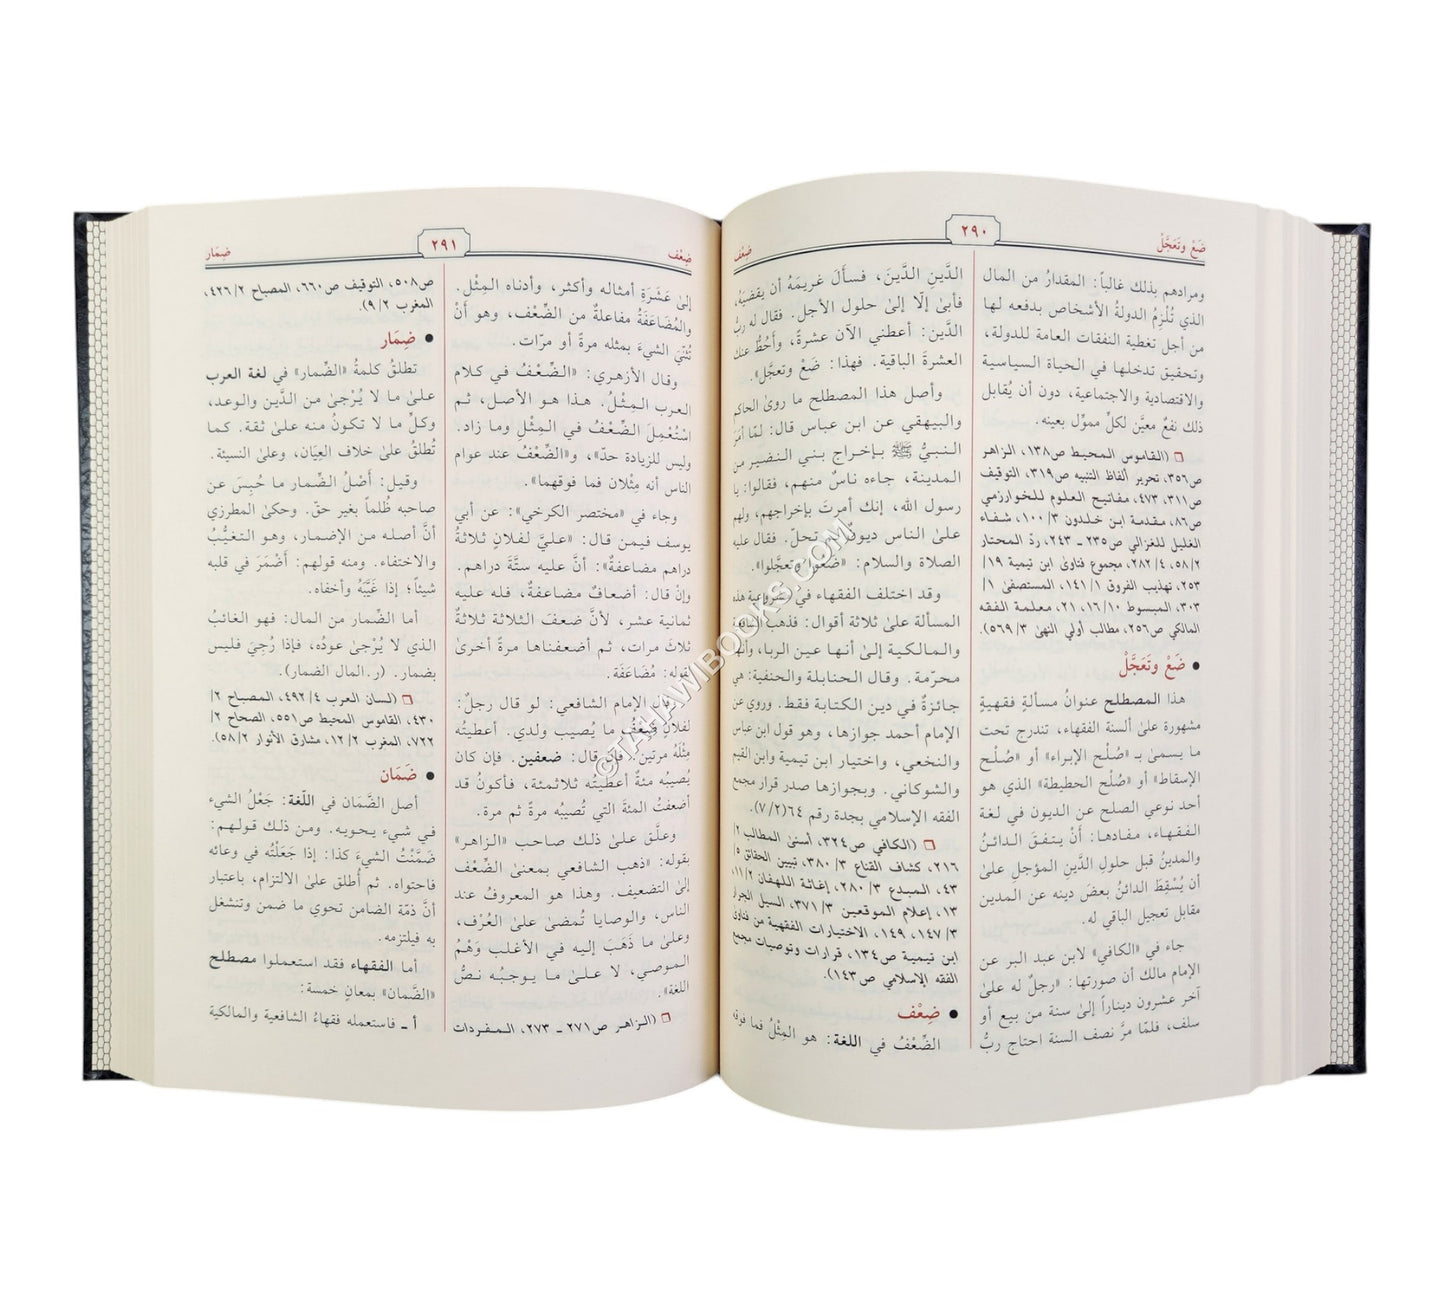 ضَعْ وتَعَجَّلْ
٢٩٠
ضِعْف
ومرادهم بذلك غالباً: المقدارُ من المال
الذي تُلْزِمُ الدولةُ الأشخاص بدفعه لها
من أجل تغطية النفقات العامة للدولة،
وتحقيق تدخلها في الحياة السياسية
والاقتصادية والاجتماعية، دون أن يُقابل
ذلك نفعٌ معيَّن لكلِّ مموِّل بعينه.
❐ (القاموس المحيط ص١٣٨، الزاهر
ص٣٥٦، تحرير ألفاظ التنبيه ص٣١٩، التوقيف
ص٣١١، ٤٧٣، مفاتيح العلوم للخوارزمي
ص٨٦، مقدمة ابن خلدون ٣/ ١٠٠، شفاء
الغليل للغزالي ص٢٣٥ ـ ٢٤٣، ردّ المحتار
٢/ ٥٨، ٤/ ٢٨٢، مجموع فتاوىٰ ابن تيمية ١٩/
٢٥٣، تهذيب الفروق ١/ ١٤١، المستصفىٰ ١/
٣٠٣، المبسوط ١٠/ ١٦، ٢١، معلمة الفقه
المالكي ص٢٥٦، مطالب أولي النهىٰ ٣/ ٥٦٩).
• ضَعْ وتَعَجَّلْ
هذا المصطلح عنوانُ مسألةٍ فقهيةٍ
مشهورة علىٰ ألسنة الفقهاء، تندرج تحت
ما يسمىٰ بـ «صُلْح الإبراء» أو «صُلْح
الإسقاط» أو «صُلْح الحطيطة» الذي هو
أحد نوعي الصلح عن الديون في لغة
الفقهاء، مفادها: أنْ يتفقَ الدائنُ
والمدينُ قبل حلولِ الدَّينِ المؤجل علىٰ
أن يُسْقِطَ الدائنُ بعضَ دينه عن المدين
مقابل تعجيل الباقي له.
جاء في «الكافي» لابن عبد البر عن
الإمام مالك أن صورتها: «رجلٌ له علىٰ
آخر عشرون ديناراً إلىٰ سنة من بيع أو
سلف، فلمّا مرَّ نصف السنة احتاج ربُّ
الدَّينِ الدَّينَ، فسأَلَ غريمَهُ أن يقضيَهُ،
فأبىٰ إلّا إلىٰ حلول الأجل. فقال له ربُّ
الدَّين: أعطني الآن عشرةً، وأَحُطُّ عنك
العشرةَ الباقية. فهذا: ضَعْ وتعجَّل».
وأصل هذا المصطلح ما روىٰ الحاكم
والبيهقي عن ابن عباس قال: لمّا أمَرَ
النبيُّ ﷺ بإخراج بني النضير من
المدينة، جاءه ناسٌ منهم، فقالوا: يا
رسول الله، إنك أمرتَ بإخراجهم، ولهم
علىٰ الناس ديونٌ لم تحلّ. فقال عليه
الصلاة والسلام: «ضَعُوا وتعجَّلوا».
وقد اختلف الفقهاء في مشروعية هذه
المسألة علىٰ ثلاثة أقوال: فذهب الشافعية
والمالكية إلىٰ أنها عين الربا، وأنها
محرّمة. وقال الحنابلة والحنفية: هي
جائزةٌ في دين الكتابة فقط. وروي عن
الإمام أحمد جوازها، وهو قول ابن عباس
والنخعي، واختيار ابن تيمية وابن القيم
والشوكاني. وبجوازها صدر قرار مجمع
الفقه الإسلامي بجدة رقم ٦٤(٧/٢).
❐ (الكافي ص٣٢٤، أسنىٰ المطالب ٢/
٢١٦، كشاف القناع ٣/ ٣٨٠، تبيين الحقائق ٥/
٤٣، المبدع ٣/ ٢٨٠، إغاثة اللهفان ٢/ ١١،
١٣، إعلام الموقعين ٣/ ٣٧١، السيل الجرار
٣/ ١٤٧، ١٤٩، الاختيارات الفقهية من فتاوىٰ
ابن تيمية ص١٣٤، قرارات وتوصيات مجمع
الفقه الإسلامي ص١٤٣).
• ضِعْف
الضِّعْفُ في اللغة: هو المِثْلُ فما فوقه
ضِعْف
٢٩١
ضِمَار
إلىٰ عَشَرَةِ أمثاله وأكثر، وأدناه المِثْل.
والمُضَاعَفَةُ مفاعلةٌ من الضِّعْف، وهو أَنْ
تُثَنِّيَ الشيءَ بمثله مرةً أو مرّات.
وقال الأزهري: «الضِّعْفُ في كلام
العرب المِثْلُ. هذا هو الأصل، ثم
اسْتُعْمِلَ الضِّعْفُ في المِثْلِ وما زاد.
وليس للزيادة حدّ»، و«الضِّعْفُ عند عوام
الناس أنه مِثْلان فما فوقهما».
وجاء في «مختصر الكرخي»: عن أبي
يوسف فيمن قال: «عليَّ لفلان ثلاثةُ
دراهم مضاعفة»: أنَّ عليه ستَّةَ دراهم.
وإنْ قال: أضعافٌ مضاعفة، فله عليه
ثمانية عشر، لأنَّ ضعفَ الثلاثة ثلاثةٌ
ثلاثَ مرات، ثم أضعفناها مرةً أخرىٰ
لقوله: مُضَاعَفَة.
وقال الإمام الشافعي: لو قال رجلٌ:
لفلانٍ ضِعْفُ ما يُصيب ولدي. أعطيتُه
مِثْلَهُ مرتين. فإن قال: ضعفين. فإن كان
يُصيبُه مئةٌ أعطيتُه ثلاثمئة، فأكونُ قد
أضعفتُ المئةَ التي تُصيبُه مرةً ثم مرة.
وعلَّق علىٰ ذلك صاحب «الزاهر»
بقوله: «ذهب الشافعي بمعنىٰ الضِّعْف
إلىٰ التضعيف. وهذا هو المعروفُ عند
الناس، والوصايا تُمضىٰ علىٰ العُرْف،
وعلىٰ ما ذَهَبَ إليه في الأغلب وَهْمُ
الموصي، لا علىٰ ما يوجبُه نصُّ
اللغة».
❐ (الزاهر ص٢٧١ ـ ٢٧٣، المفردات
ص٥٠٨، التوقيف ص٦٦٠، المصباح ٢/ ٤٢٦،
المغرب ٢/ ٩).
• ضِمَار
تطلقُ كلمةُ «الضِّمار» في لغة العرب
علىٰ ما لا يُرْجىٰ من الدَّين والوعد،
وكلِّ ما لا تكونُ منه علىٰ ثقة. كما
تُطلقُ علىٰ خلاف العِيَان، وعلىٰ النسيئة.
وقيل: أَصْلُ الضِّمار ما حُبِسَ عن
صاحبه ظُلماً بغير حقّ. وحكىٰ المطرزي
أنَّ أصله من الإضمار، وهو التغيُّبُ
والاختفاء. ومنه قولهم: أَضْمَرَ في قلبه
شيئاً؛ إذا غَيَّبَهُ وأخفاه.
أما الضِّمار من المال: فهو الغائبُ
الذي لا يُرْجىٰ عودُه، فإذا رُجِيَ فليس
بضمار. (ر. المال الضمار).
❐ (لسان العرب ٤/ ٤٩٢، المصباح ٢/
٤٣٠، القاموس المحيط ص٥٥١، الصحاح ٢/
٧٢٢، المغرب ٢/ ١٢، مشارق الأنوار ٢/ ٥٨).
• ضَمَان
أصل الضَّمَان في اللّغة: جَعْلُ الشيء
في شيء يحويه. ومن ذلك قولهم:
ضَمَّنْتُ الشيءَ كذا: إذا جَعَلْتُه في وعائه
فاحتواه. ثم أُطلق علىٰ الالتزام، باعتبار
أنَّ ذمّة الضامن تحوي ما ضمن وتنشغل
به فيلتزمه.
أما الفقهاء فقد استعملوا مصطلح
«الضَّمان» بمعانٍ خمسة:
أ ـ فاستعمله فقهاءُ الشافعية والمالكية